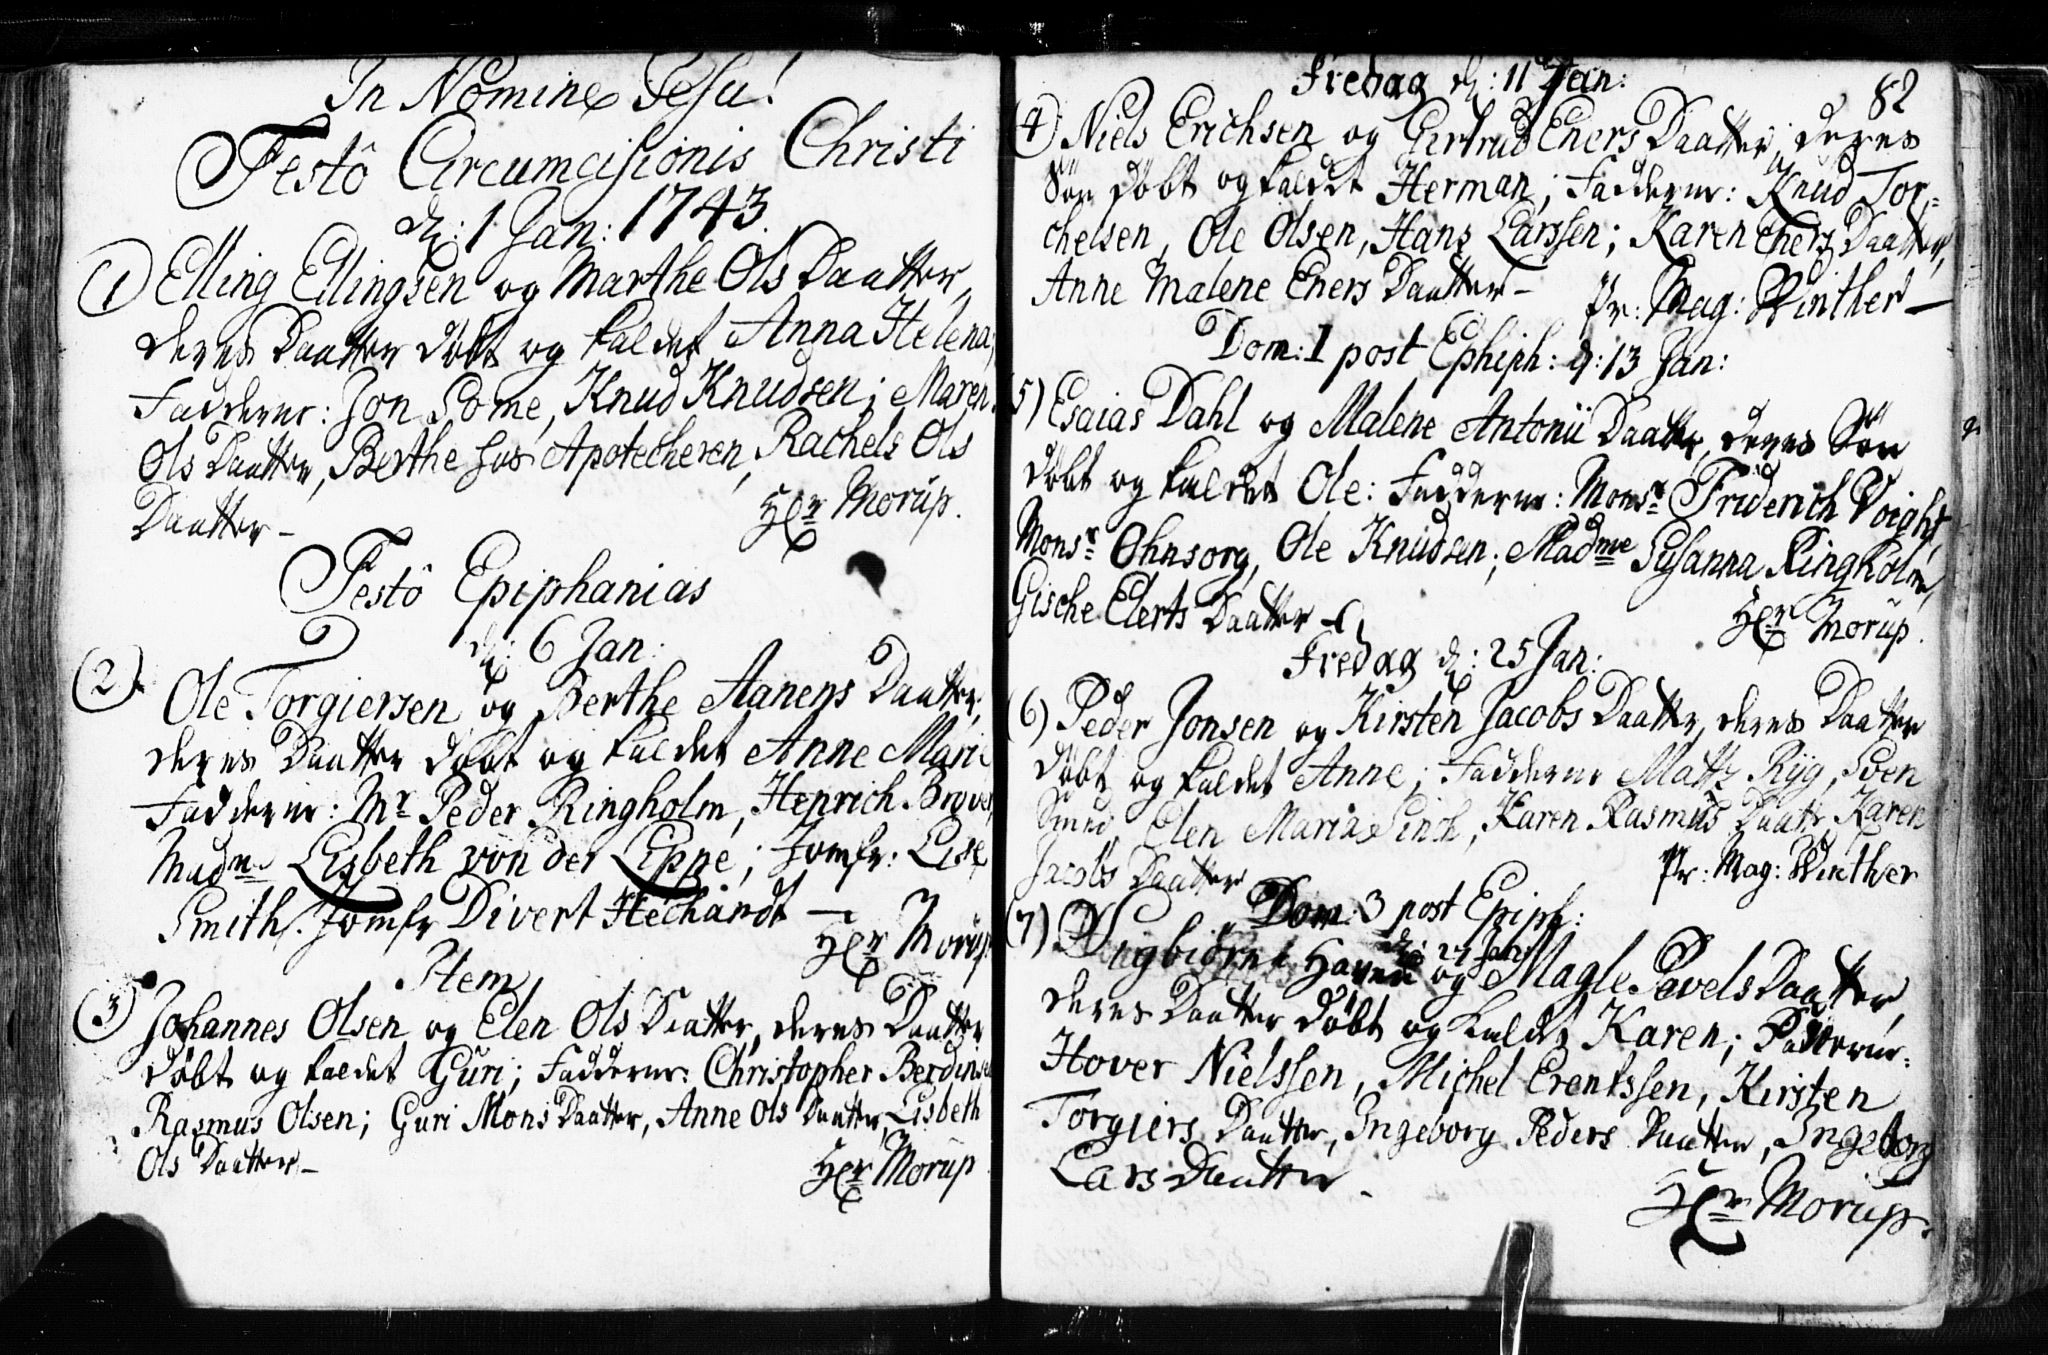 In Nomine Jesu!
Festô Circumcisionis Christi
d: 1 Jan: 1743.
1) Elling Ellingsen og Marthe Ols Daatter,
deres Daatter døbt og kaldet Anna Helena;
Fadderne: Jon Some, Knud Knudsen; Maren
Ols Daatter, Berthe hos Apotecheren, Rachels Ols
Daatter –
Hr Morup.
Festô Epiphanias
d: 6 Jan:
2) Ole Torgiersen og Berthe Aanens Daatter,
deres Daatter døbt og kaldet Anne Marie
Fadderne: Mr Peder Ringholm, Henrich Brover
Madme Lisbeth von der Lippe; Jomfr: Lise
Smith, Jomfr Divert Hechandt –
Hr Morup
Item
3) Johannes Olsen og Elen Ols Daatter, deres Daatter
døbt og kaldet Guri; Fadderne: Christopher Berdinsen
Rasmus Olsen; Guri Mons Daatter, Anne Ols Daatter, Lisbeth
Ols Daatter –
Hr Morup
82
Fredag d: 11 Jan:
4) Niels Erichsen og Girtrud Eners Daatter, deres
Søn døbt og kaldet Herman; Fadderne: Knud Tor-
chelsen, Ole Olsen, Hans Larssen; Karen Eners Daatter,
Anne Malene Eners Daatter –
Pr: Mag: Winther –
Dom: 1 post Ephiph: d: 13 Jan:
5) Esaias Dahl og Malene Antonii Daatter, deres Søn
døbt og kaldet Ole: Fadderne: Monsr Friderich Voight,
Monsr Ohnsorg, Ole Knudsen; Madme Susanna Ringholm,
Gische Elerts Daatter –
Hr Morup.
Fredag d: 25 Jan:
6) Peder Jonsen og Kirsten Jacobs Daatter, deres Daatter
døbt og kaldet Anne; Fadderne Matts Ryg, Sven
Smed, Elen Maria Finch, Karen Rasmus Daatr Karen
Jacobs Daatter
Pr: Mag: Winther
Dom: 3 post Epiph:
d: 27 Jan:
7) Haven og Magle Pavels Daatter,
deres Daatter døbt og kaldet Karen; Fadderne:
Hover Nielssen, Michel Erentssen, Kirsten
Torgiers Daatter, Ingeborg Peders Daatter, Ingeborg
Lars Daatter.
Hr Morup.